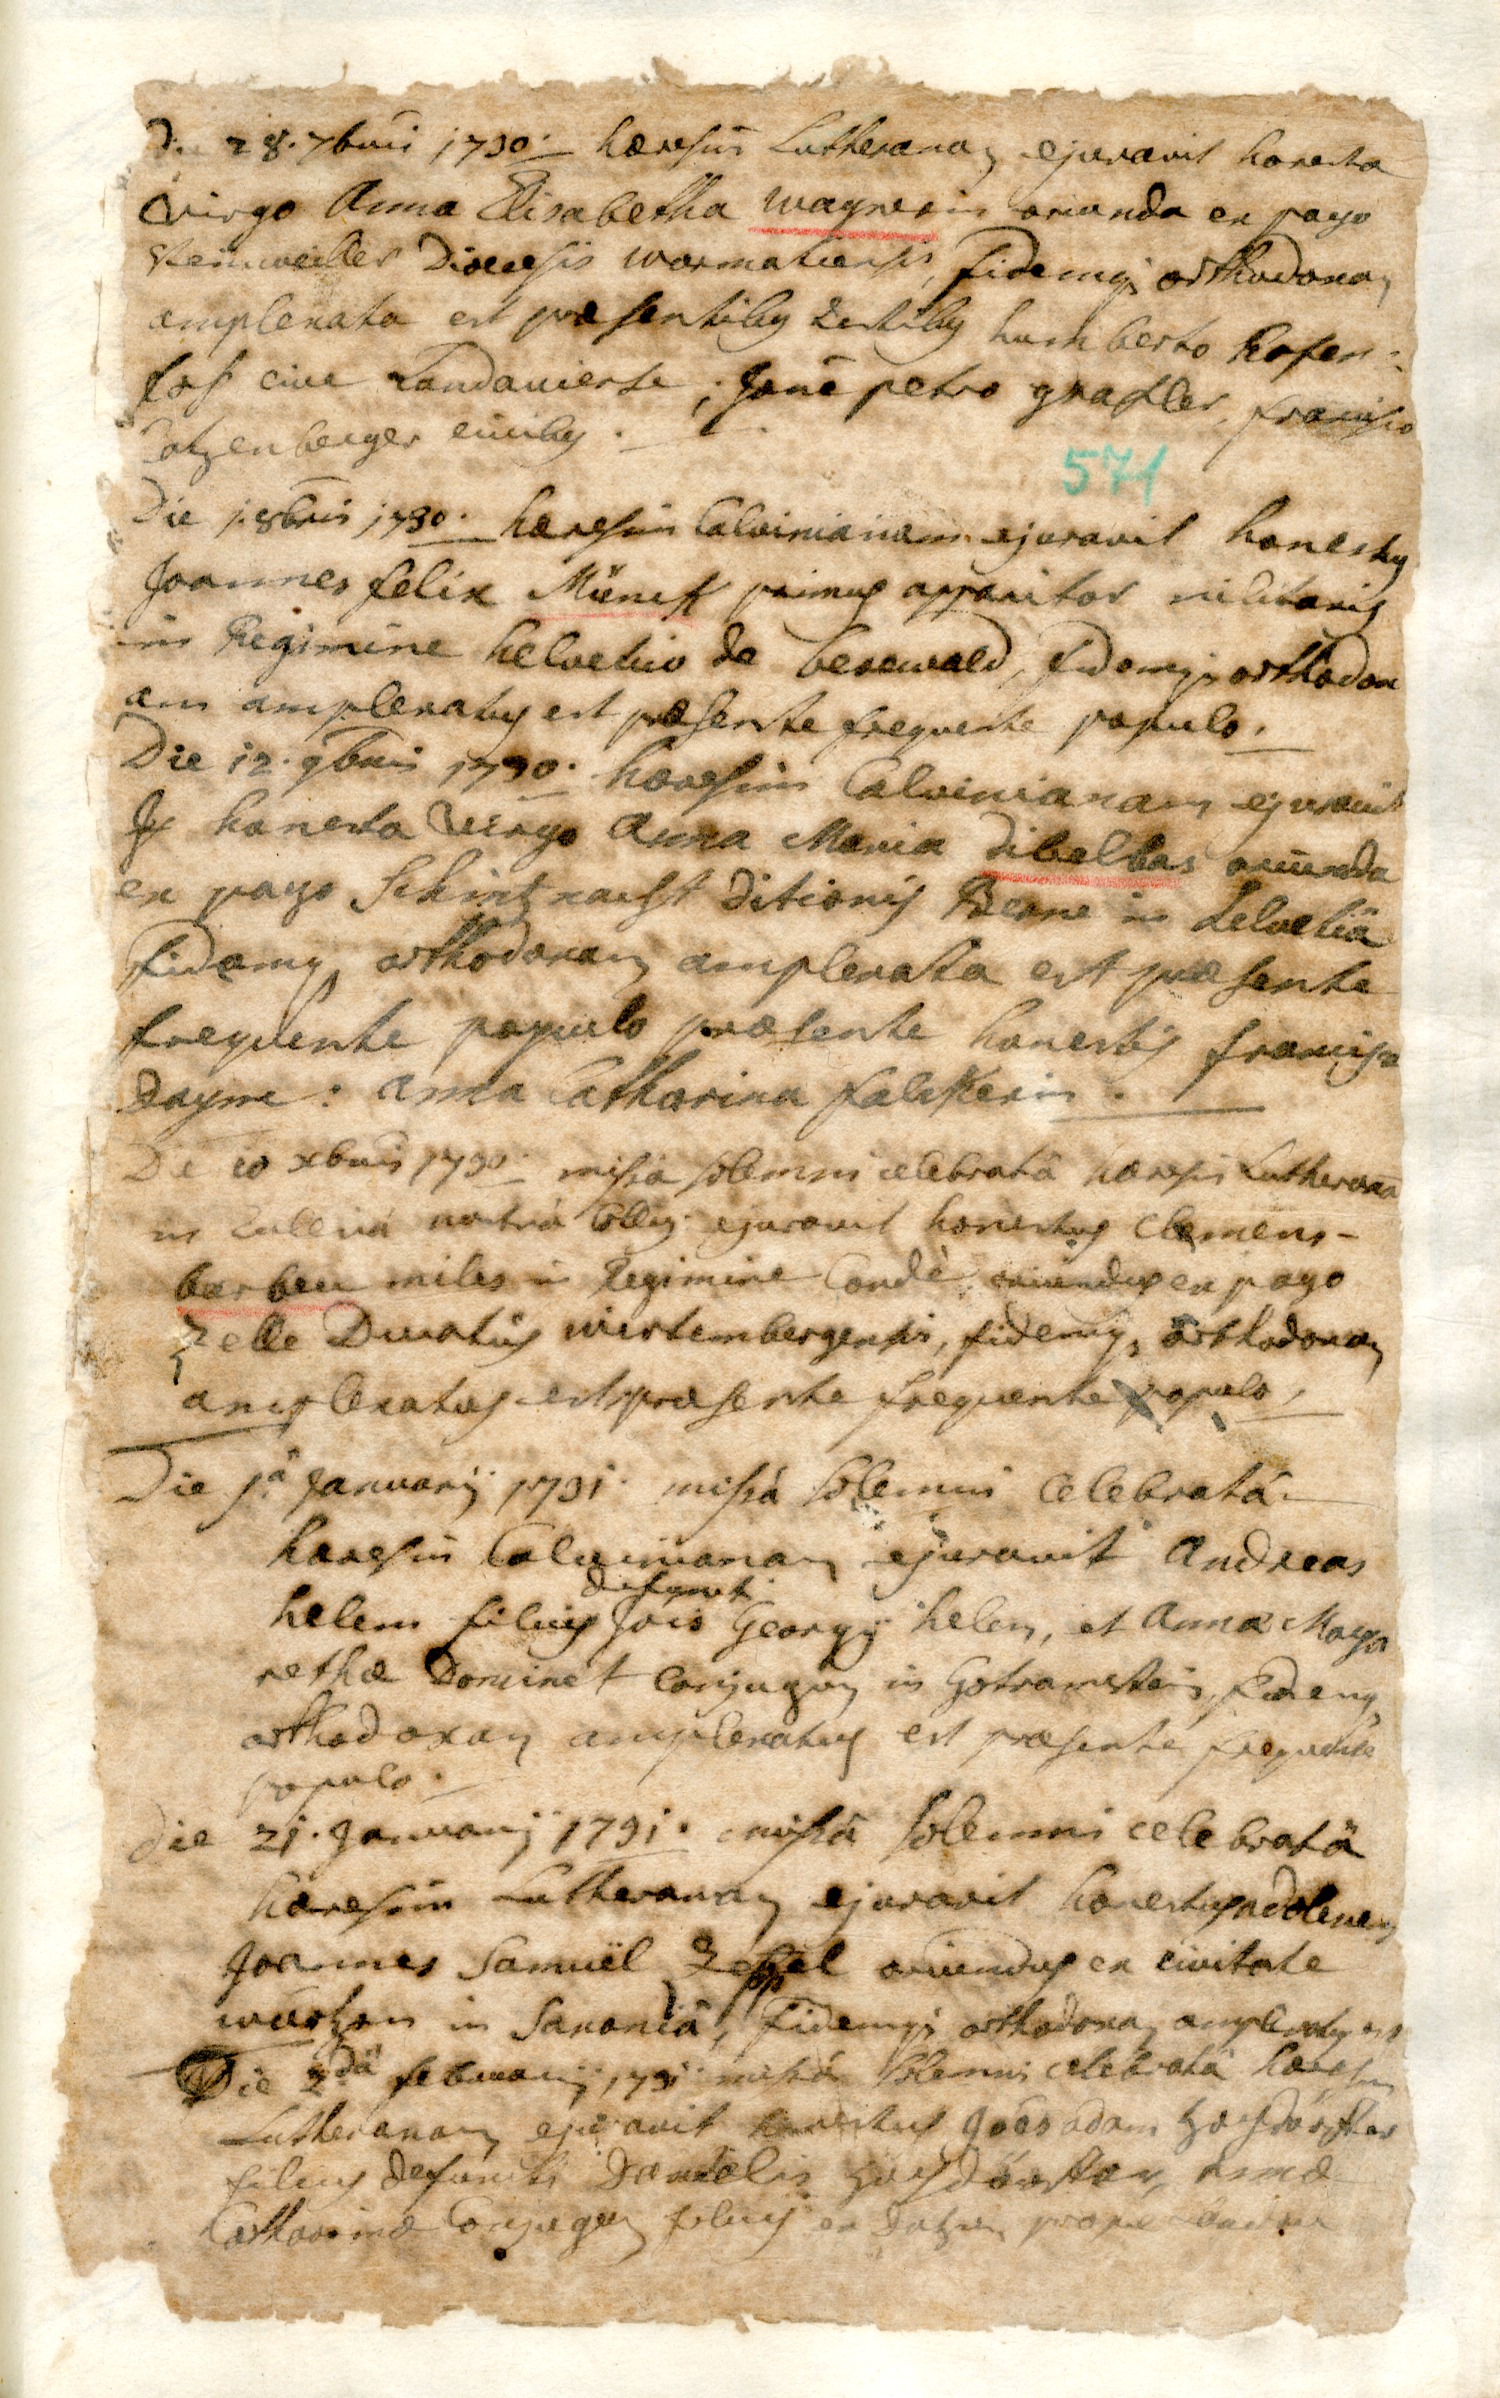 Die 28. 7bris 1730. hæresin Lutheranam ejuravit honesta
Virgo Anna Elisabetha Wagnerin oriunda ex pago
Steinweiller Diœcesis wormatiensis, fidemq; orthodoxam
amplexata est præsentibus testibus humberto Rosen-
fass cive Landaviense, Joñe petro gnaffler, francisco
Datzenberger civibus.
571
Die 1. 8bris 1730. hæresin Calvinianam ejuravit honestus
Joannes felix Münch primus apparitor militaris
in Regimine helvetico de besewald, fidemq; orthodox
am amplexatus est præsente frequente populo.
Die 12. 9bris 1730. hæresin Calvinianam ejuravit
honesta Virgo Anna Maria dibelbas oriunda
ex pago Schintznacht ditionis Berne in helvetiâ
fidemq; orthodoxam amplexata est præsente
frequente populo præsente honestis francisco
Dayme: Anna Catharina falckerin.
Die 10 xbris 1730. missâ solemni celebratâ hæresin Lutheranã
in Ecclesiâ nostrâ Colleg: ejuravit honestus Clemens
barbeu miles in Regimine Condè, oriundus ex pago
Zelle Ducatûs wirtembergensis, fidemq; orthodoxam
amplexatus est præsente frequente populo.
Die 1â Januarij 1731. missâ solemni celebratâ
hæresin Calvinianam ejuravit Andreas
helem filius Jois Georgij helem, et Annæ Marga
defuncti
rethæ Dominet Conjugum in Gotramstein, fidemq;
orthodoxam amplexatus est præsente frequente
populo.
Die 21. Januarij 1731. missâ solemni celebratâ
hæresin Lutheranam ejuravit honestus adolescens
Joannes Samuël Zeppel oriundus ex civitate
wurtzen in Saxoniâ, fidemq; orthodoxam amplexatus est
Die 2dâ februarij 1731 missâ solemni celebratâ hæresin
Lutheranam ejuravit honestus Joês adam
filius defuncti Danielis Annæ
Catharinæ Conjugum filius ex prope